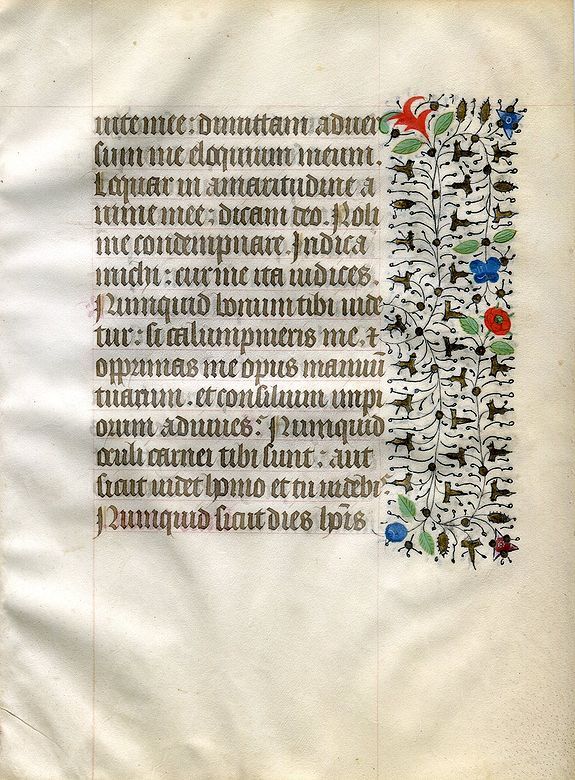 uite mee: dimittam aduer
sum me eloquium meum.
Loquar in amaritudine a
nime mee: dicam deo. Noli
me condempnare. Indica
michi: cur me ita iudices.
Nunquid bonum tibi uide
tur: si calumpnieris me, ⁊
opprimas me opus manuū
tuarum. et consilium impi
orum adiuues: Nunquid
oculi carnei tibi sunt: aut
sicut uidet homo et tu uidebis
Nunquid sicut dies hoīs